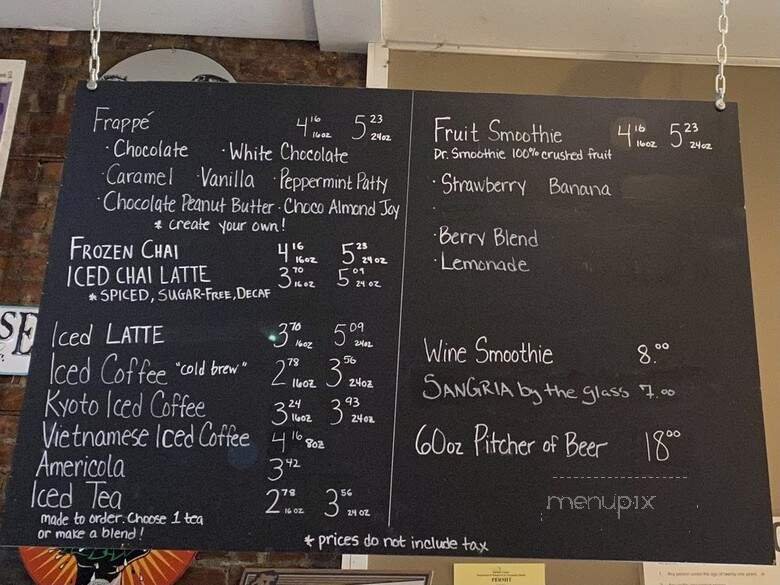 Frappé 4 16 16oz 5 23 24oz
· Chocolate · White Chocolate
· Caramel · Vanilla · Peppermint Patty
· Chocolate Peanut Butter · Choco Almond Joy
* create your own!
FROZEN CHAI 4 16 16oz 5 23 24oz
ICED CHAI LATTE 3 70 16oz 5 09 24oz
* SPICED, SUGAR-FREE, DECAF
Iced LATTE 3 70 16oz 5 09 24oz
Iced Coffee "cold brew" 2 78 16oz 3 56 24oz
Kyoto Iced Coffee 3 24 16oz 3 93 24oz
Vietnamese Iced Coffee 4 16 8oz
Americola 3 42
Iced Tea 2 78 16oz 3 56 24oz
made to order. Choose 1 tea
or make a blend!
Fruit Smoothie 4 16 16oz 5 23 24oz
Dr. Smoothie 100% crushed fruit
· Strawberry Banana
·
· Berry Blend
· Lemonade
Wine Smoothie 8.00
SANGRIA by the glass 7.00
60oz Pitcher of Beer 18 00
menupix
* prices do not include tax
SE
PERMIT